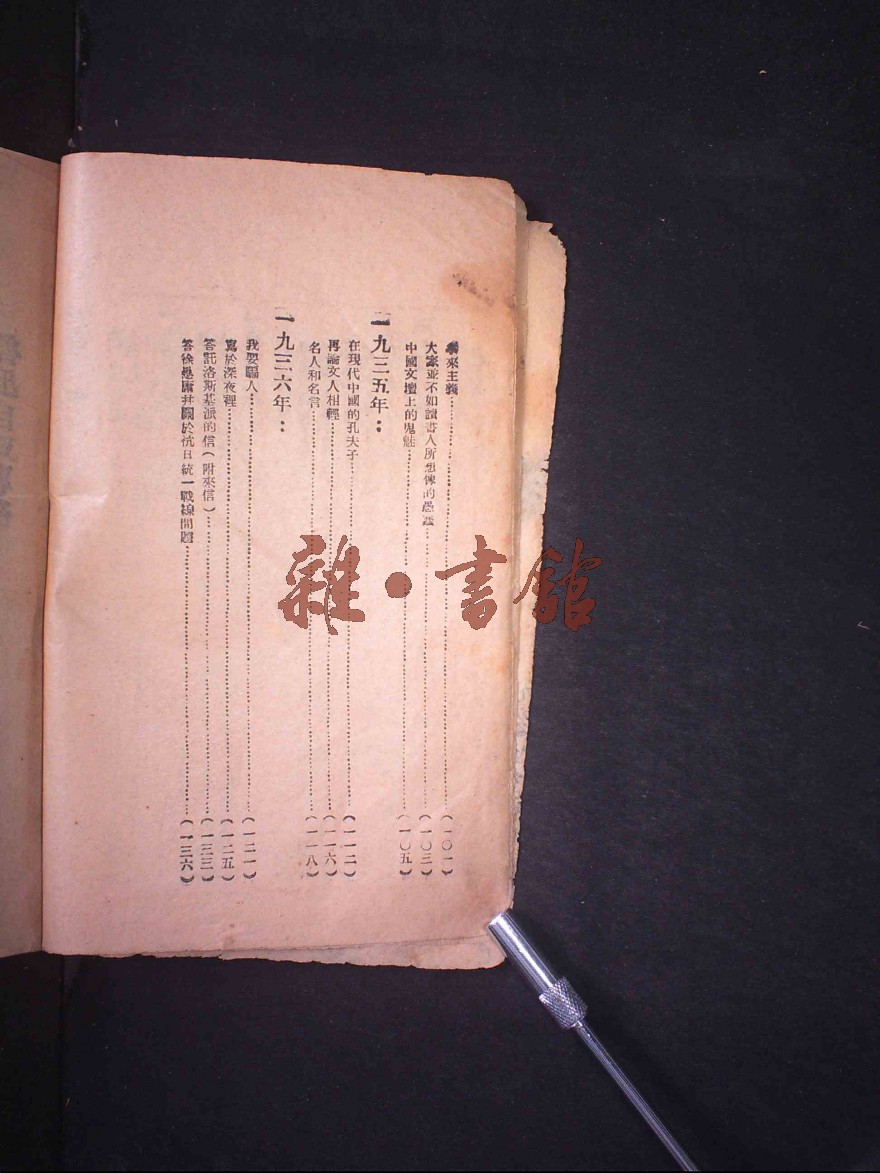 拿來主義……(一〇一)
大家並不如讀書人所想像的愚蠢……(一〇三)
中國文壇上的鬼魅……(一〇五)
一九三五年：
在現代中國的孔夫子……(一一二)
再論文人相輕……(一一六)
名人和名言……(一一八)
一九三六年：
我要騙人……(一二一)
寫於深夜裡……(一二五)
答託洛斯基派的信(附來信)……(一三三)
答徐懋庸并關於抗日統一戰線問題……(一三六)
雜·書館